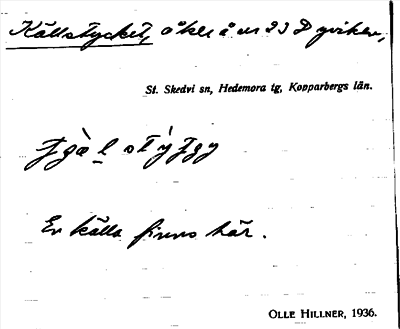 Källstycket, åker å nr 23 Dyviken,
St. Skedvi sn, Hedemora tg, Kopparbergs län.
En källa finns här.
OLLE HILLNER, 1936.